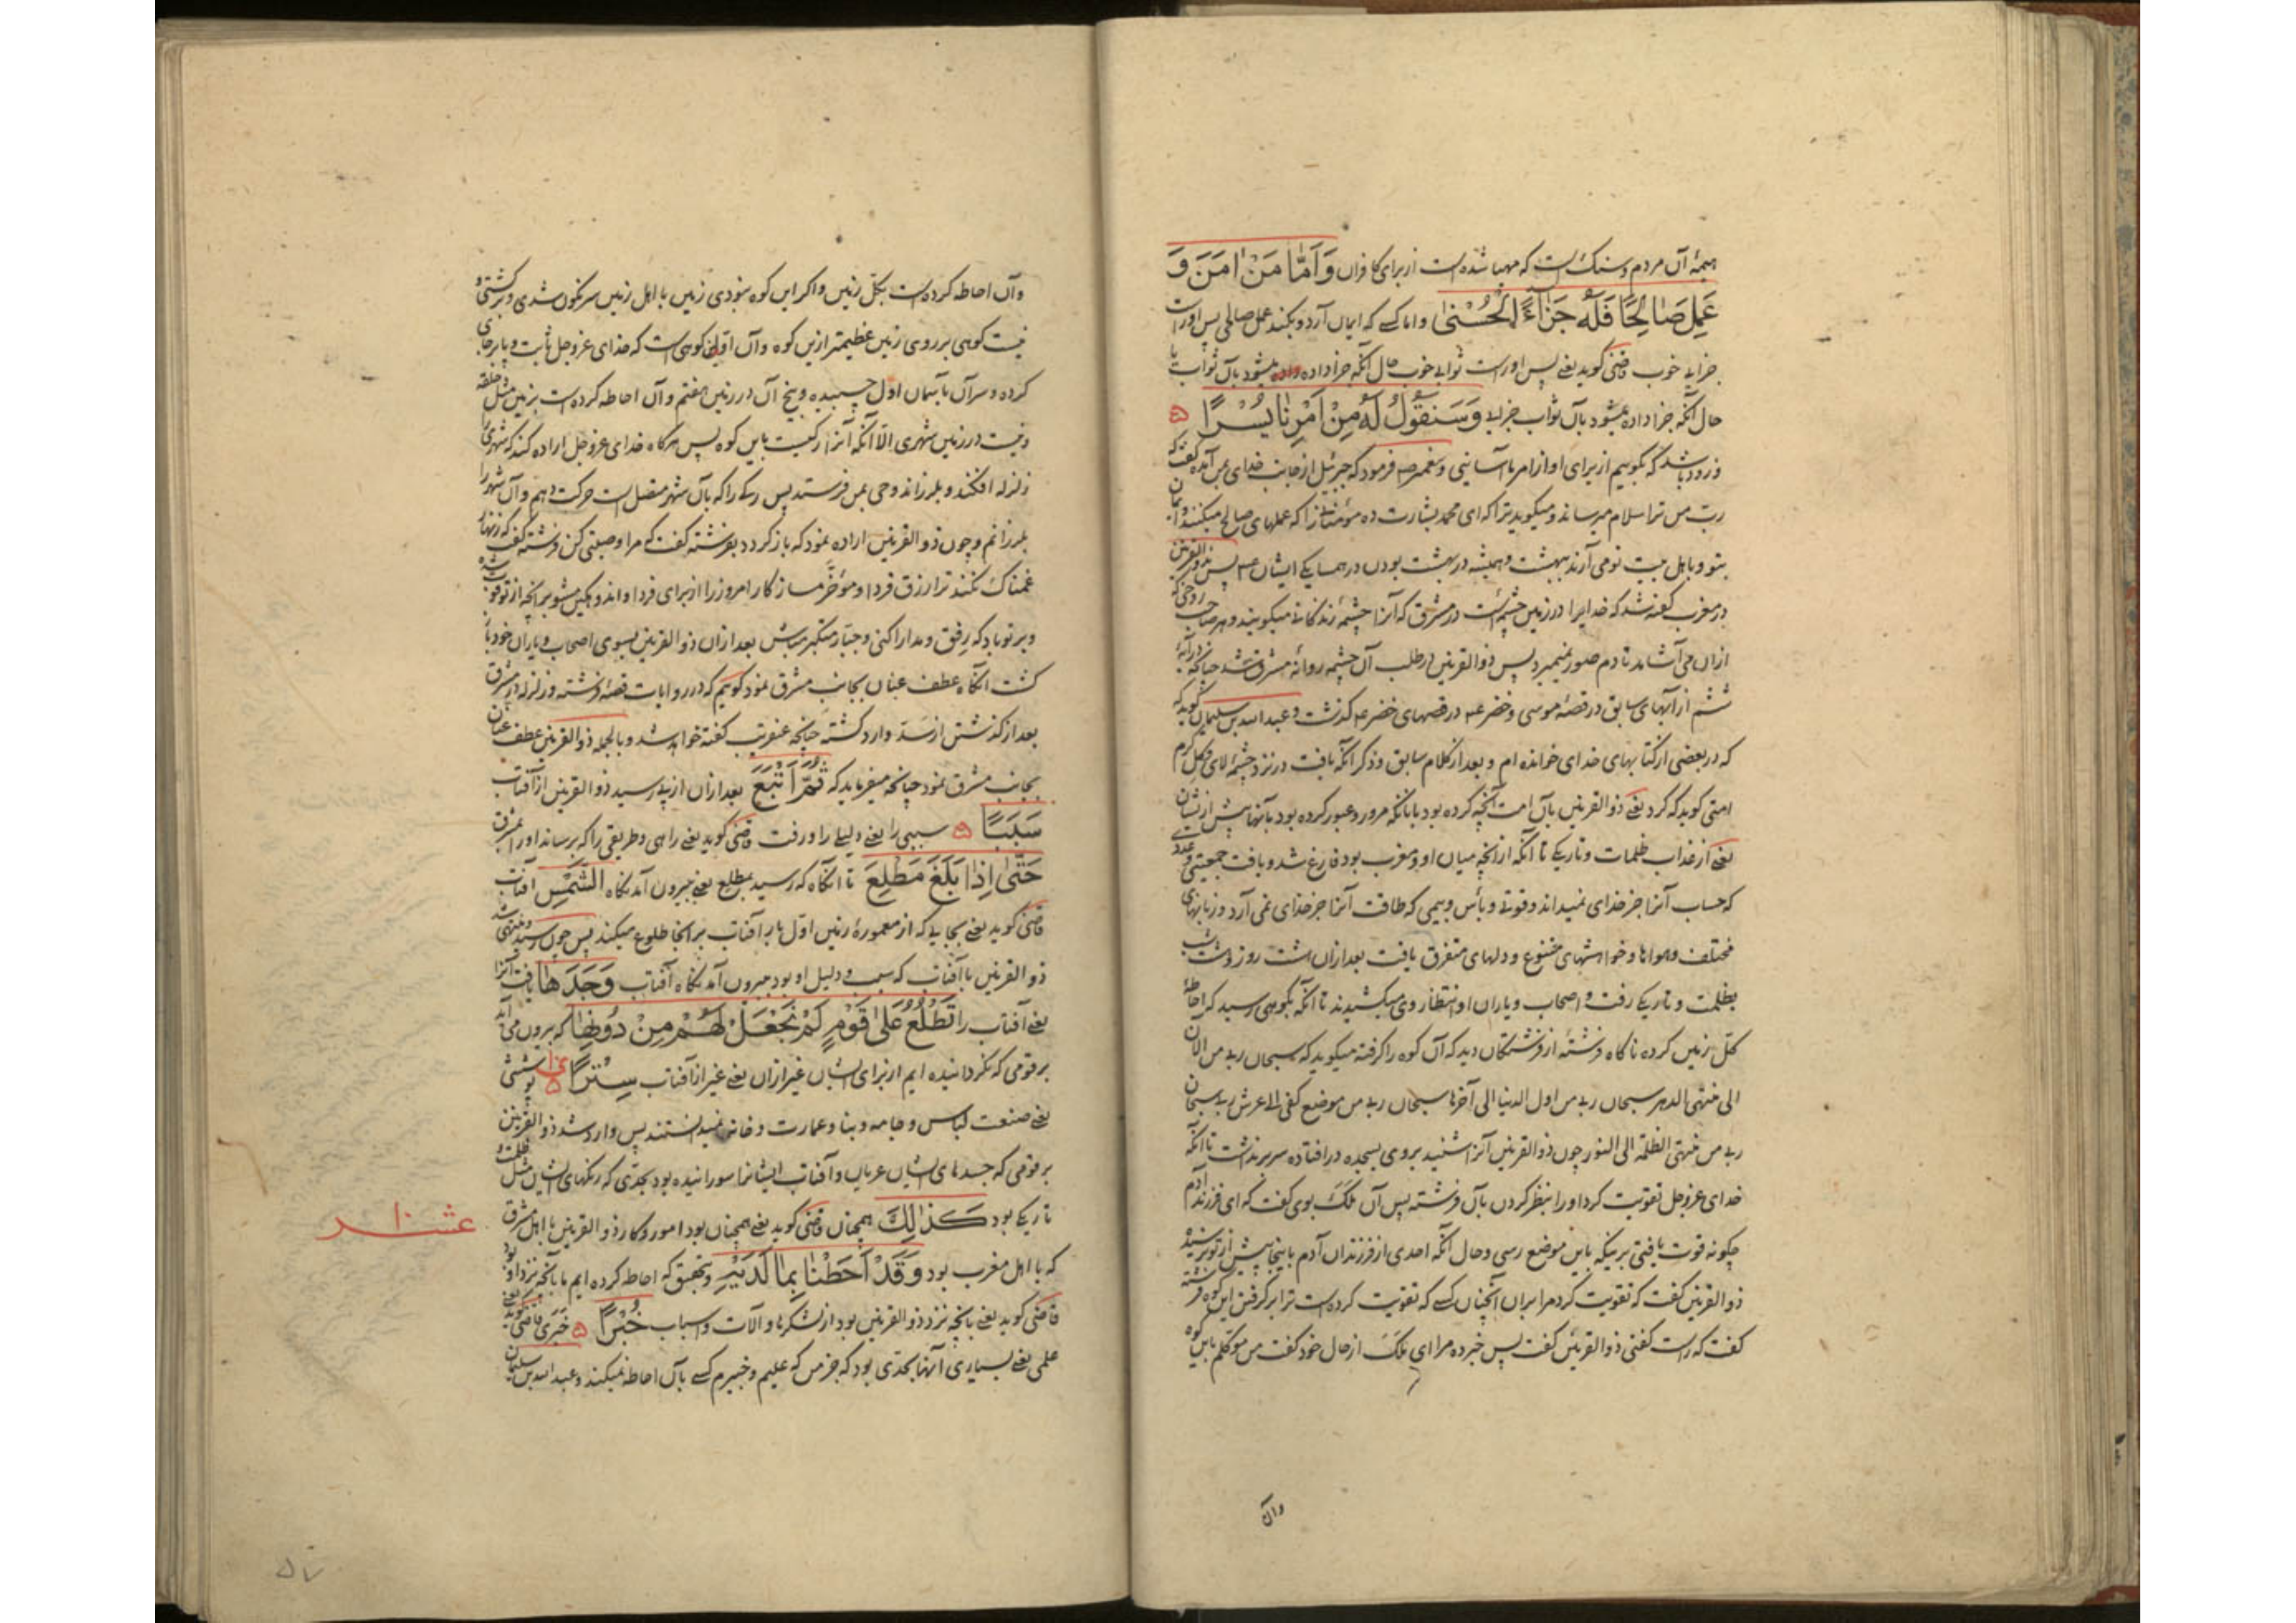 همهٔ آن مردم و سنک است که مهیا شده است از برای کافران وَ اَمّٰا مَنْ اٰمَنَ وَ
عَمِلَ صٰالِحًا فَلَهُ جَزٰاءً الْحُسْنٰی و اما کسے که ایمان آرد و بکند عمل صالحی پس او راست
جزایے خوب قاضی کوید یعنے پس او راست ثوابے خوب حال آنکه جزا داده میشود بآن ثواب یا
حال آنکه جزا داده میشود بآن ثواب جزایے وَ سَنَقُولُ لَهُ مِنْ اَمْرِنٰا یُسْرًا
و زود باشد که بکوییم از برای او از امر ما آسانیی و پیغمبر ص فرمود که جبرئیل از جانب خدای بمن آمده کفت که
ربّ من ترا سلام میرساند و میکوید ترا که ای محمد بشارت ده مؤمنانرا که عملهای صالح میکنند و ایمان
بتو و باهل بیت تو می آرند ببهشت و همیشه در بهشت بودن در همسایکے ایشان پس ذو القرنین
در مغرب کفته شد که خدایرا در زمین چشمه‌ایست در مشرق که آنرا چشمهٔ زندکانے میکویند و هر صاحب روحی که
ازان می آشامد تا دم صور نمیمیرد پس ذو القرنین در طلب آن چشمه روانهٔ مشرق شد چنانکه در آیهٔ
ششم از آیهای سابق در قصهٔ موسی و خضر ع در قصهای خضر ع کذشت و عبد الله بن سلیمان کوید که
که در بعضی از کتابهای خدای خوانده ام و بعد از کلام سابق و ذکر آنکه یافت در نزد چشمه لای و کل کرم
امتی کوید که کرد یعنے ذو القرنین بآن امت آنچه کرده بود با بآنکه مرور و عبور کرده بود بآنها پیش از ایشان
یعنے از عذاب ظلمات و تاریکے تا آنکه از آنچه میان او و مغرب بود فارغ شد و یافت جمعیتی و عددے
که حساب آنرا جز خدای نمیداند و قوتے و بأس و بیمی که طاقت آنرا جز خدای نمی آرد و زبانهای
مختلف و هواها و خواهشهای متنوع و دلهای متفرق یافت بعد ازان هشت روز و هشت شب
بظلمت و تاریکے رفت و اصحاب و یاران او انتظار وی میکشیدند تا آنکه بکوهی رسید که احاطهٔ
کلّ زمین کرده ناکاه فرشتهٔ از فرشتکان دید که آن کوه را کرفته میکوید که سبحان ربے من الان
الی منتهی الدهر سبحان ربے من اول الدنیا الی آخرها سبحان ربے من موضع کفی الے عرش ربے سبحان
ربے من منتهی الظلمة الی النور چون ذو القرنین آنرا شنید بروی بسجده در افتاده سر برنداشت تا آنکه
خدای عزوجل تقویت کرد او را بنظر کردن بآن فرشته پس آن مَلَک بوی کفت که ای فرزند آدم
چکونه قوت یافتی برینکه باین موضع رسی و حال آنکه احدی از فرزندان آدم باینجا پیش از تو نرسید
ذو القرنین کفت که تقویت کرد مرا بران آنچنان کسے که تقویت کرده است ترا بر کرفتن این کوه فرشته
کفت که راست کفتی ذو القرنین کفت پس خبر ده مرا ای مَلَک از حال خود کفت من موکلم باین کوه
وآن
وآن احاطه کرده است بکلّ زمین و اکر این کوه نبودی زمین با اهل زمین سرنکون شدی و برکشتی و
نیست کوهی بر روی زمین عظیمتر ازین کوه و آن اولین کوهی است که خدای عزوجل ثابت و پابرجای
کرده و سر آن بآسمان اول چسپیده و بیخ آن در زمین هفتم و آن احاطه کرده است بزمین مثل حلقه
و نیست در زمین شهری الّا آنکه آنرا رکیست باین کوه پس هرکاه خدای عزوجل اراده کند که شهریرا
زلزله افکند و بلرزاند وحی بمن فرستد پس رکے را که بآن شهر متصل است حرکت دهم و آن شهر را
بلرزانم و چون ذو القرنین اراده نمود که باز کردد بفرشته کفت که مرا وصیتی کن فرشته کفت که زنهار
غمناک نکند ترا رزق فردا و مؤخّر مساز کار امروز را از برای فردا و اندوهکین مشو بر آنچه از تو فوت شده
و بر تو باد که رفق و مدارا کنی و جبّار متکبر مباش بعد ازان ذو القرنین بسوی اصحاب و یاران خود باز
کشت آنکاه عطف عنان بجانب مشرق نمود کوییم که در روایات قصهٔ فرشته و زلزله در مشرق
بعد از کذشتن از سدّ وارد کشته چنانچه عنقریب کفته خواهد شد و بالجمله ذو القرنین عطف عنان
بجانب مشرق نمود چنانچه میفرماید که ثُمَّ اَتْبَعَ بعد ازان از پے رسید ذو القرنین از آفتاب
سَبَبًا سببی را یعنے دلیلے را و رفت قاضی کوید یعنے راهی و طریقی را که برساند او را بمشرق
حَتّٰی اِذٰا بَلَغَ مَطْلِعَ تا آنکاه که رسید بمطلع یعنے بیرون آمدنکاه الشَّمْسِ آفتاب
قاضی کوید یعنے بجایے که از معمورهٔ زمین اول بار آفتاب بر آنجا طلوع میکند پس چون رسید و منتهی شد
ذو القرنین با آفتاب که سبب و دلیل او بود بیرون آمدنکاه آفتاب وَجَدَهٰا یافت آنرا
یعنے آفتاب را تَطْلُعُ عَلٰی قَوْمٍ لَمْ نَجْعَلْ لَهُمْ مِنْ دُونِهٰا که برون می آید
بر قومی که نکردانیده ایم از برای ایشان غیر ازان یعنے غیر از آفتاب سِتْرًا پوششی
یعنے صنعت لباس و جامه و بنا و عمارت و خانه نمیدانستند پس وارد شد ذو القرنین
بر قومی که جسدهای ایشان عریان و آفتاب ایشانرا سوزانیده بود بحدّی که رنکهای ایشان مثل ظلمت و
تاریکے بود کَذٰلِكَ همچنان قاضی کوید یعنے همچنان بود امور و کار ذو القرنین با اهل مشرق
که با اهل مغرب بود وَ قَدْ اَحَطْنٰا بِمٰا لَدَیْهِ و بتحقیق که احاطه کرده ایم ما بآنچه نزد او بود
قاضی کوید یعنے بآنچه نزد ذو القرنین بود از لشکرها و آلات و اسباب خُبْرًا خبری قاضی کوید یعنے
علمی یعنے بسیاری آنها بحدّی بود که جز من که علیم و خبیرم کسے بآن احاطه نمیکند و عبد الله بن سلیمان